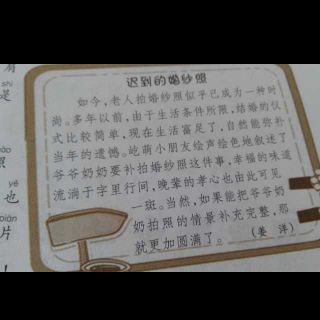 迟到的婚纱照
如今,老人拍婚纱照似乎已成为一种时
尚。多年以前,由于生活条件所限,结婚的仪
式比较简单,现在生活富足了,自然能弥补
当年的遗憾。屹萌小朋友绘声绘色地叙述了
爷爷奶奶要补拍婚纱照这件事,幸福的味道
流淌于字里行间,晚辈的孝心也由此可见
一斑。当然,如果能把爷爷奶
奶拍照的情景补充完整,那
就更加圆满了。
(姜 洋)
shì
是
yě
也
piàn
片
!